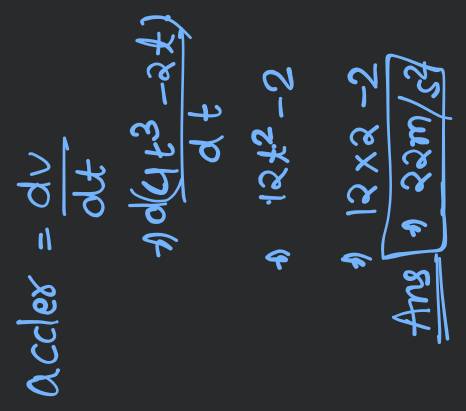 accler = dv/dt
⇒ d(4t³ - 2t)/dt
⇒ 12t² - 2
⇒ 12 × 2 - 2
Ans ⇒ 22m/s²